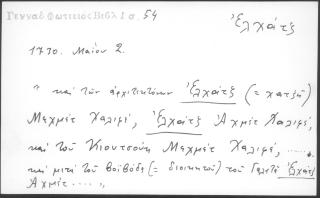 Γενναδ Φωτιειος Βιβλ 1 σ. 54
Ἐλχάτζ
1730. Μαίου 2.
" καὶ τῶν ἀρχιτεκτόνων Ἐλχάτζ (= χατζῆ)
Μεχμὲτ Χαλιφέ, Ἐλχάτζ Ἀχμὲτ Χαλιφέ,
καὶ τοῦ Κιουτσοὺκ Μεχμὲτ Χαλιφέ, ......
καὶ μετὰ τοῦ βοϊβόδα (= διοικητοῦ) τοῦ Γαλατᾶ Ἐλχάτζ
Ἀχμέτ .... "